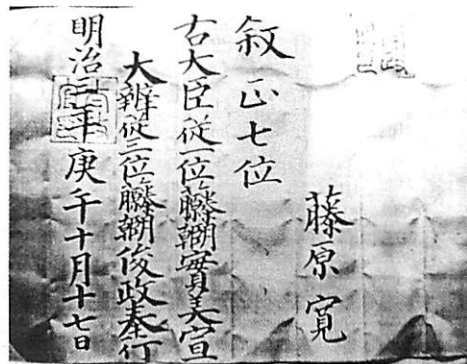 藤原寛
叙正七位
右大臣従一位藤朝臣實美宣
大辨従三位藤朝臣俊政奉行
明治三年庚午十月十七日